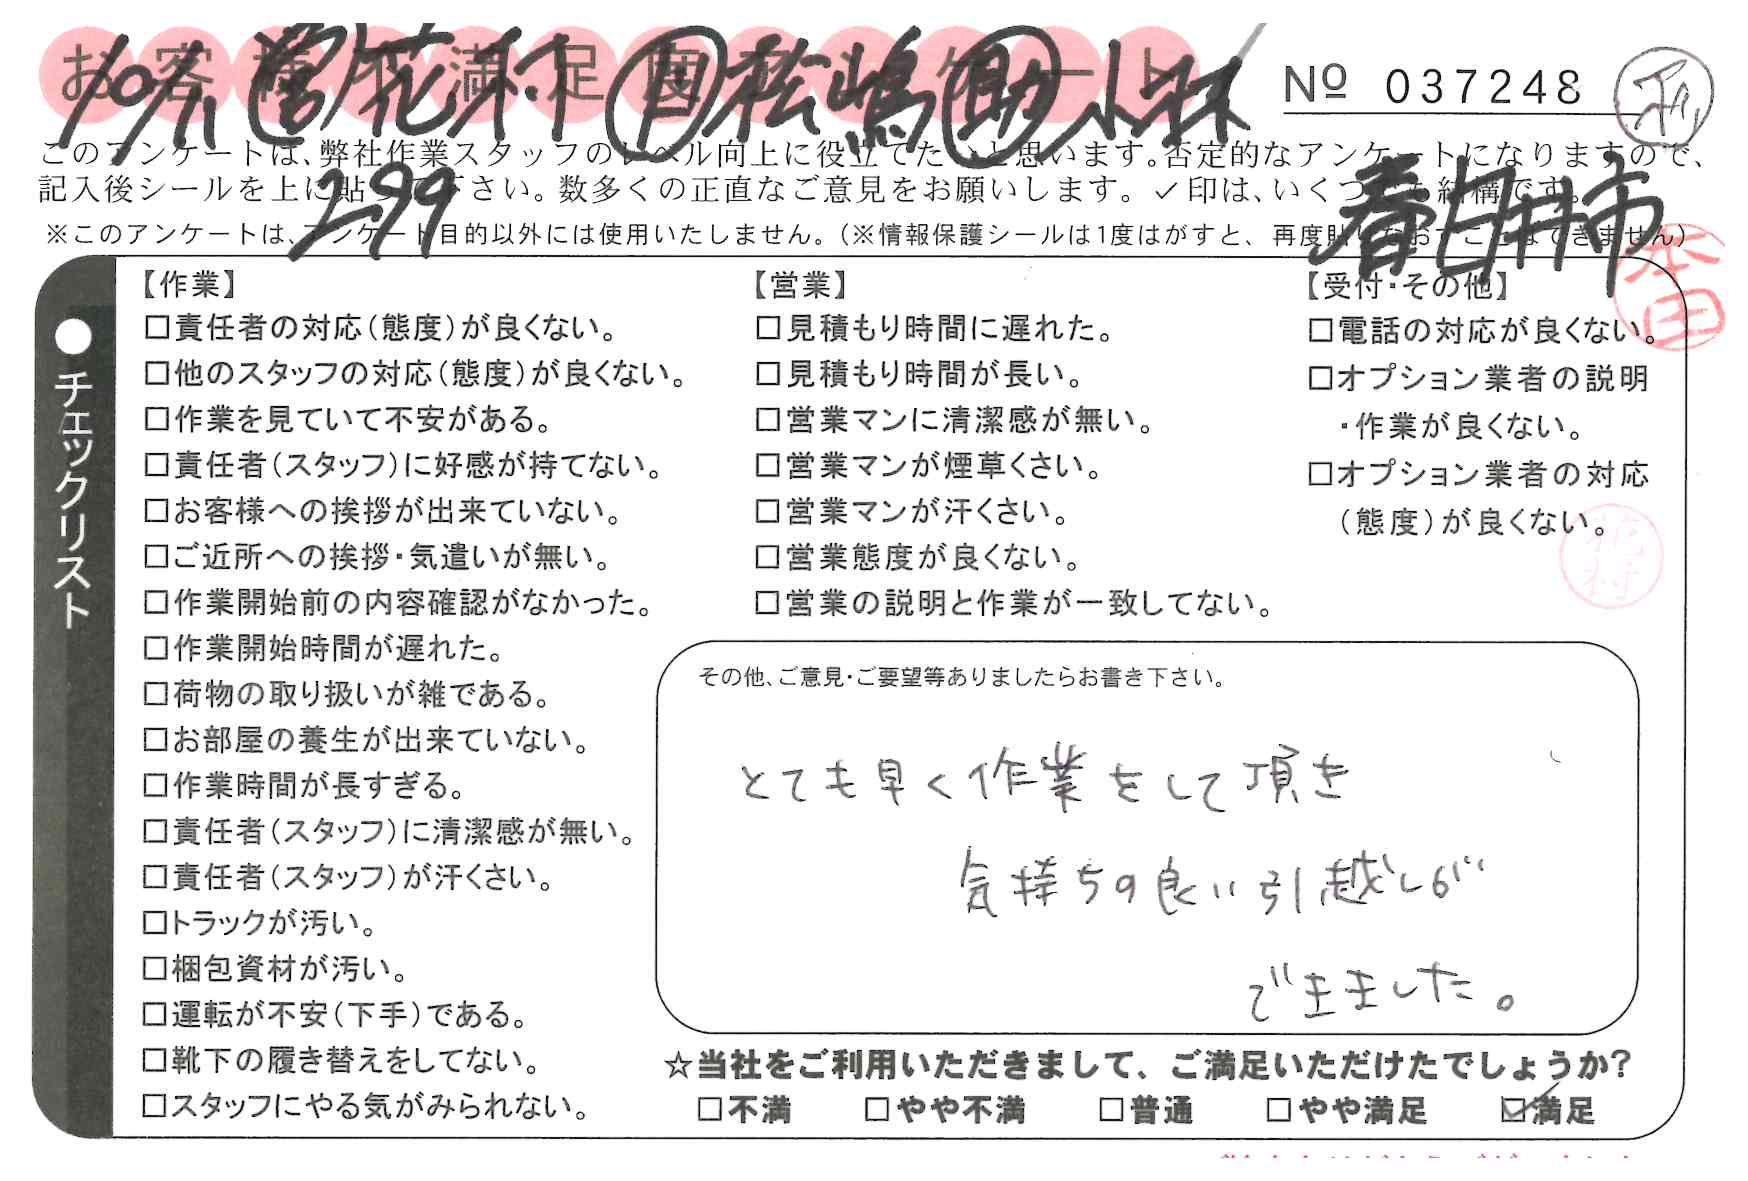 お客様不満足度アンケート
10/11 営 花村 自 松嶋 助 小林
No 037248
このアンケートは、弊社作業スタッフのレベル向上に役立てたいと思います。否定的なアンケートになりますので、
記入後シールを上に貼って下さい。数多くの正直なご意見をお願いします。✓印は、いくつでも結構です。
299
春日井市
※このアンケートは、アンケート目的以外には使用いたしません。(※情報保護シールは1度はがすと、再度貼りなおすことはできません)
本田
●チェックリスト
【作業】
□責任者の対応(態度)が良くない。
□他のスタッフの対応(態度)が良くない。
□作業を見ていて不安がある。
□責任者(スタッフ)に好感が持てない。
□お客様への挨拶が出来ていない。
□ご近所への挨拶・気遣いが無い。
□作業開始前の内容確認がなかった。
□作業開始時間が遅れた。
□荷物の取り扱いが雑である。
□お部屋の養生が出来ていない。
□作業時間が長すぎる。
□責任者(スタッフ)に清潔感が無い。
□責任者(スタッフ)が汗くさい。
□トラックが汚い。
□梱包資材が汚い。
□運転が不安(下手)である。
□靴下の履き替えをしてない。
□スタッフにやる気がみられない。
【営業】
□見積もり時間に遅れた。
□見積もり時間が長い。
□営業マンに清潔感が無い。
□営業マンが煙草くさい。
□営業マンが汗くさい。
□営業態度が良くない。
□営業の説明と作業が一致してない。
【受付・その他】
□電話の対応が良くない。
□オプション業者の説明
・作業が良くない。
□オプション業者の対応
(態度)が良くない。
花村
その他、ご意見・ご要望等ありましたらお書き下さい。
とても早く作業をして頂き
気持ちの良い引越しが
できました。
☆当社をご利用いただきまして、ご満足いただけたでしょうか?
□不満 □やや不満 □普通 □やや満足 ☑満足